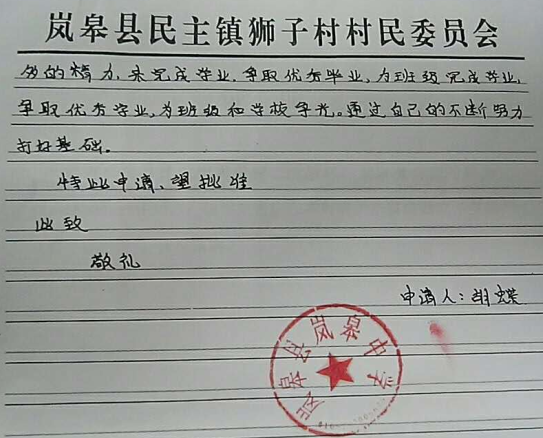 岚皋县民主镇狮子村村民委员会
多的精力,来完成学业,争取优秀毕业,为班级完成学业,
争取优秀学业,为班级和学校争光。通过自己的不断努力
打好基础。
特此申请、望批准
此致
敬礼
申请人:胡蝶
岚皋县岚皋中学